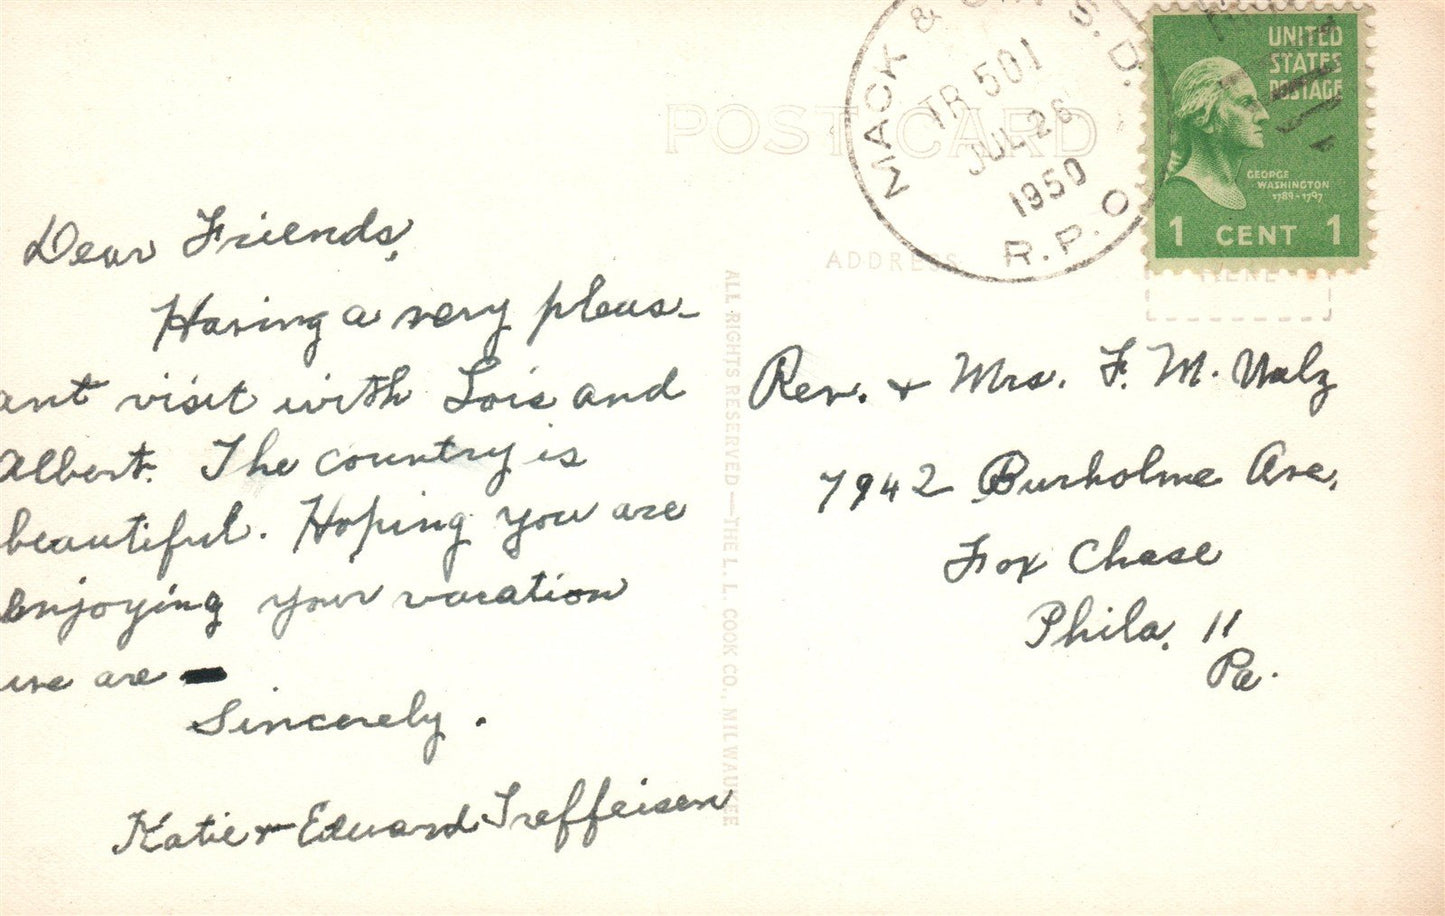 Dear Friends,
Having a very pleas-
ant visit with Lois and
Albert. The country is
beautiful. Hoping you are
enjoying your vacation
we are
Sincerely.
Katie + Edward Treffeisen
POST CARD
MACK & S.D.
TR 501
JUL 26
1950
R.P.O
UNITED
STATES
POSTAGE
GEORGE
WASHINGTON
1789-1797
1 CENT 1
ADDRESS
HERE
ALL RIGHTS RESERVED—THE L. L. COOK CO., MILWAUKEE
Rev. + Mrs. F. M.
7942 Burholme Ave.
Fox Chase
Phila. 11
Pa.